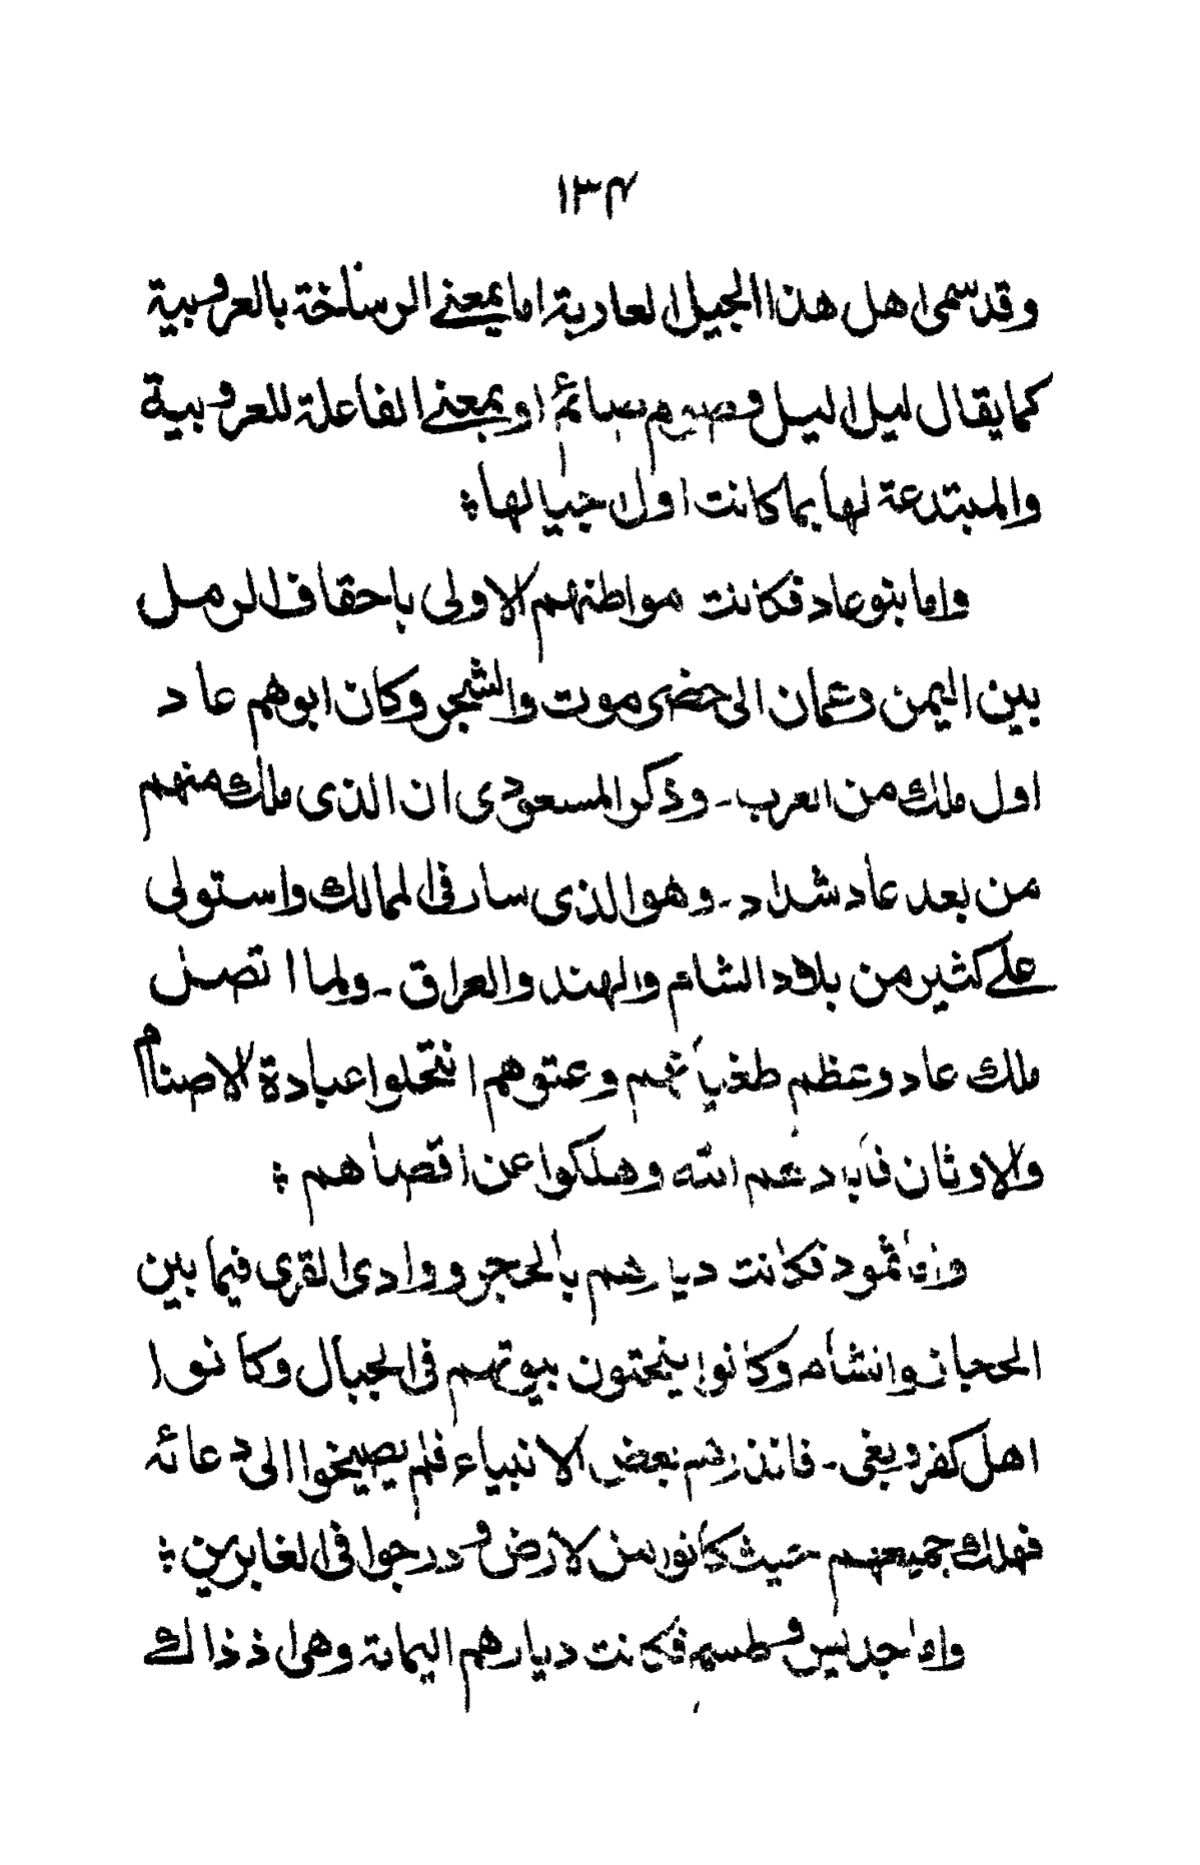 ١٣٤
وقد سمى اهل هذا الجيل العاربة اما بمعنى الرساخة بالعروبية
كما يقال ليل اليل وصوم صائم او بمعنى الفاعلة للعروبية
والمبتدعة لها بما كانت اول اجيالها
واما بنو عاد فكانت مواطنهم الاولى باحقاف الرمل
بين اليمن وعمان الى حضرموت والشجر وكان ابوهم عاد
اول ملك من العرب ـ وذكر المسعودى ان الذى ملك منهم
من بعد عاد شداد ـ وهو الذى سار فى الممالك واستولى
على كثير من بلاد الشام والهند والعراق ـ ولما اتصل
ملك عاد وعظم طغيانهم وعتوهم انتحلوا عبادة الاصنام
والاوثان فابادهم الله وهلكوا عن اقصاهم
واما ثمود فكانت ديارهم بالحجر ووادى القرى فيما بين
الحجاز والشام وكانوا ينحتون بيوتهم فى الجبال وكانوا
اهل كفر وبغى ـ فانذرهم بعض الانبياء فلم يصيخوا الى دعائه
فهلك جميعهم حيث كانوا من الارض ودرجوا فى الغابرين
واما جديس وطسم فكانت ديارهم اليمامة وهى اذ ذاك